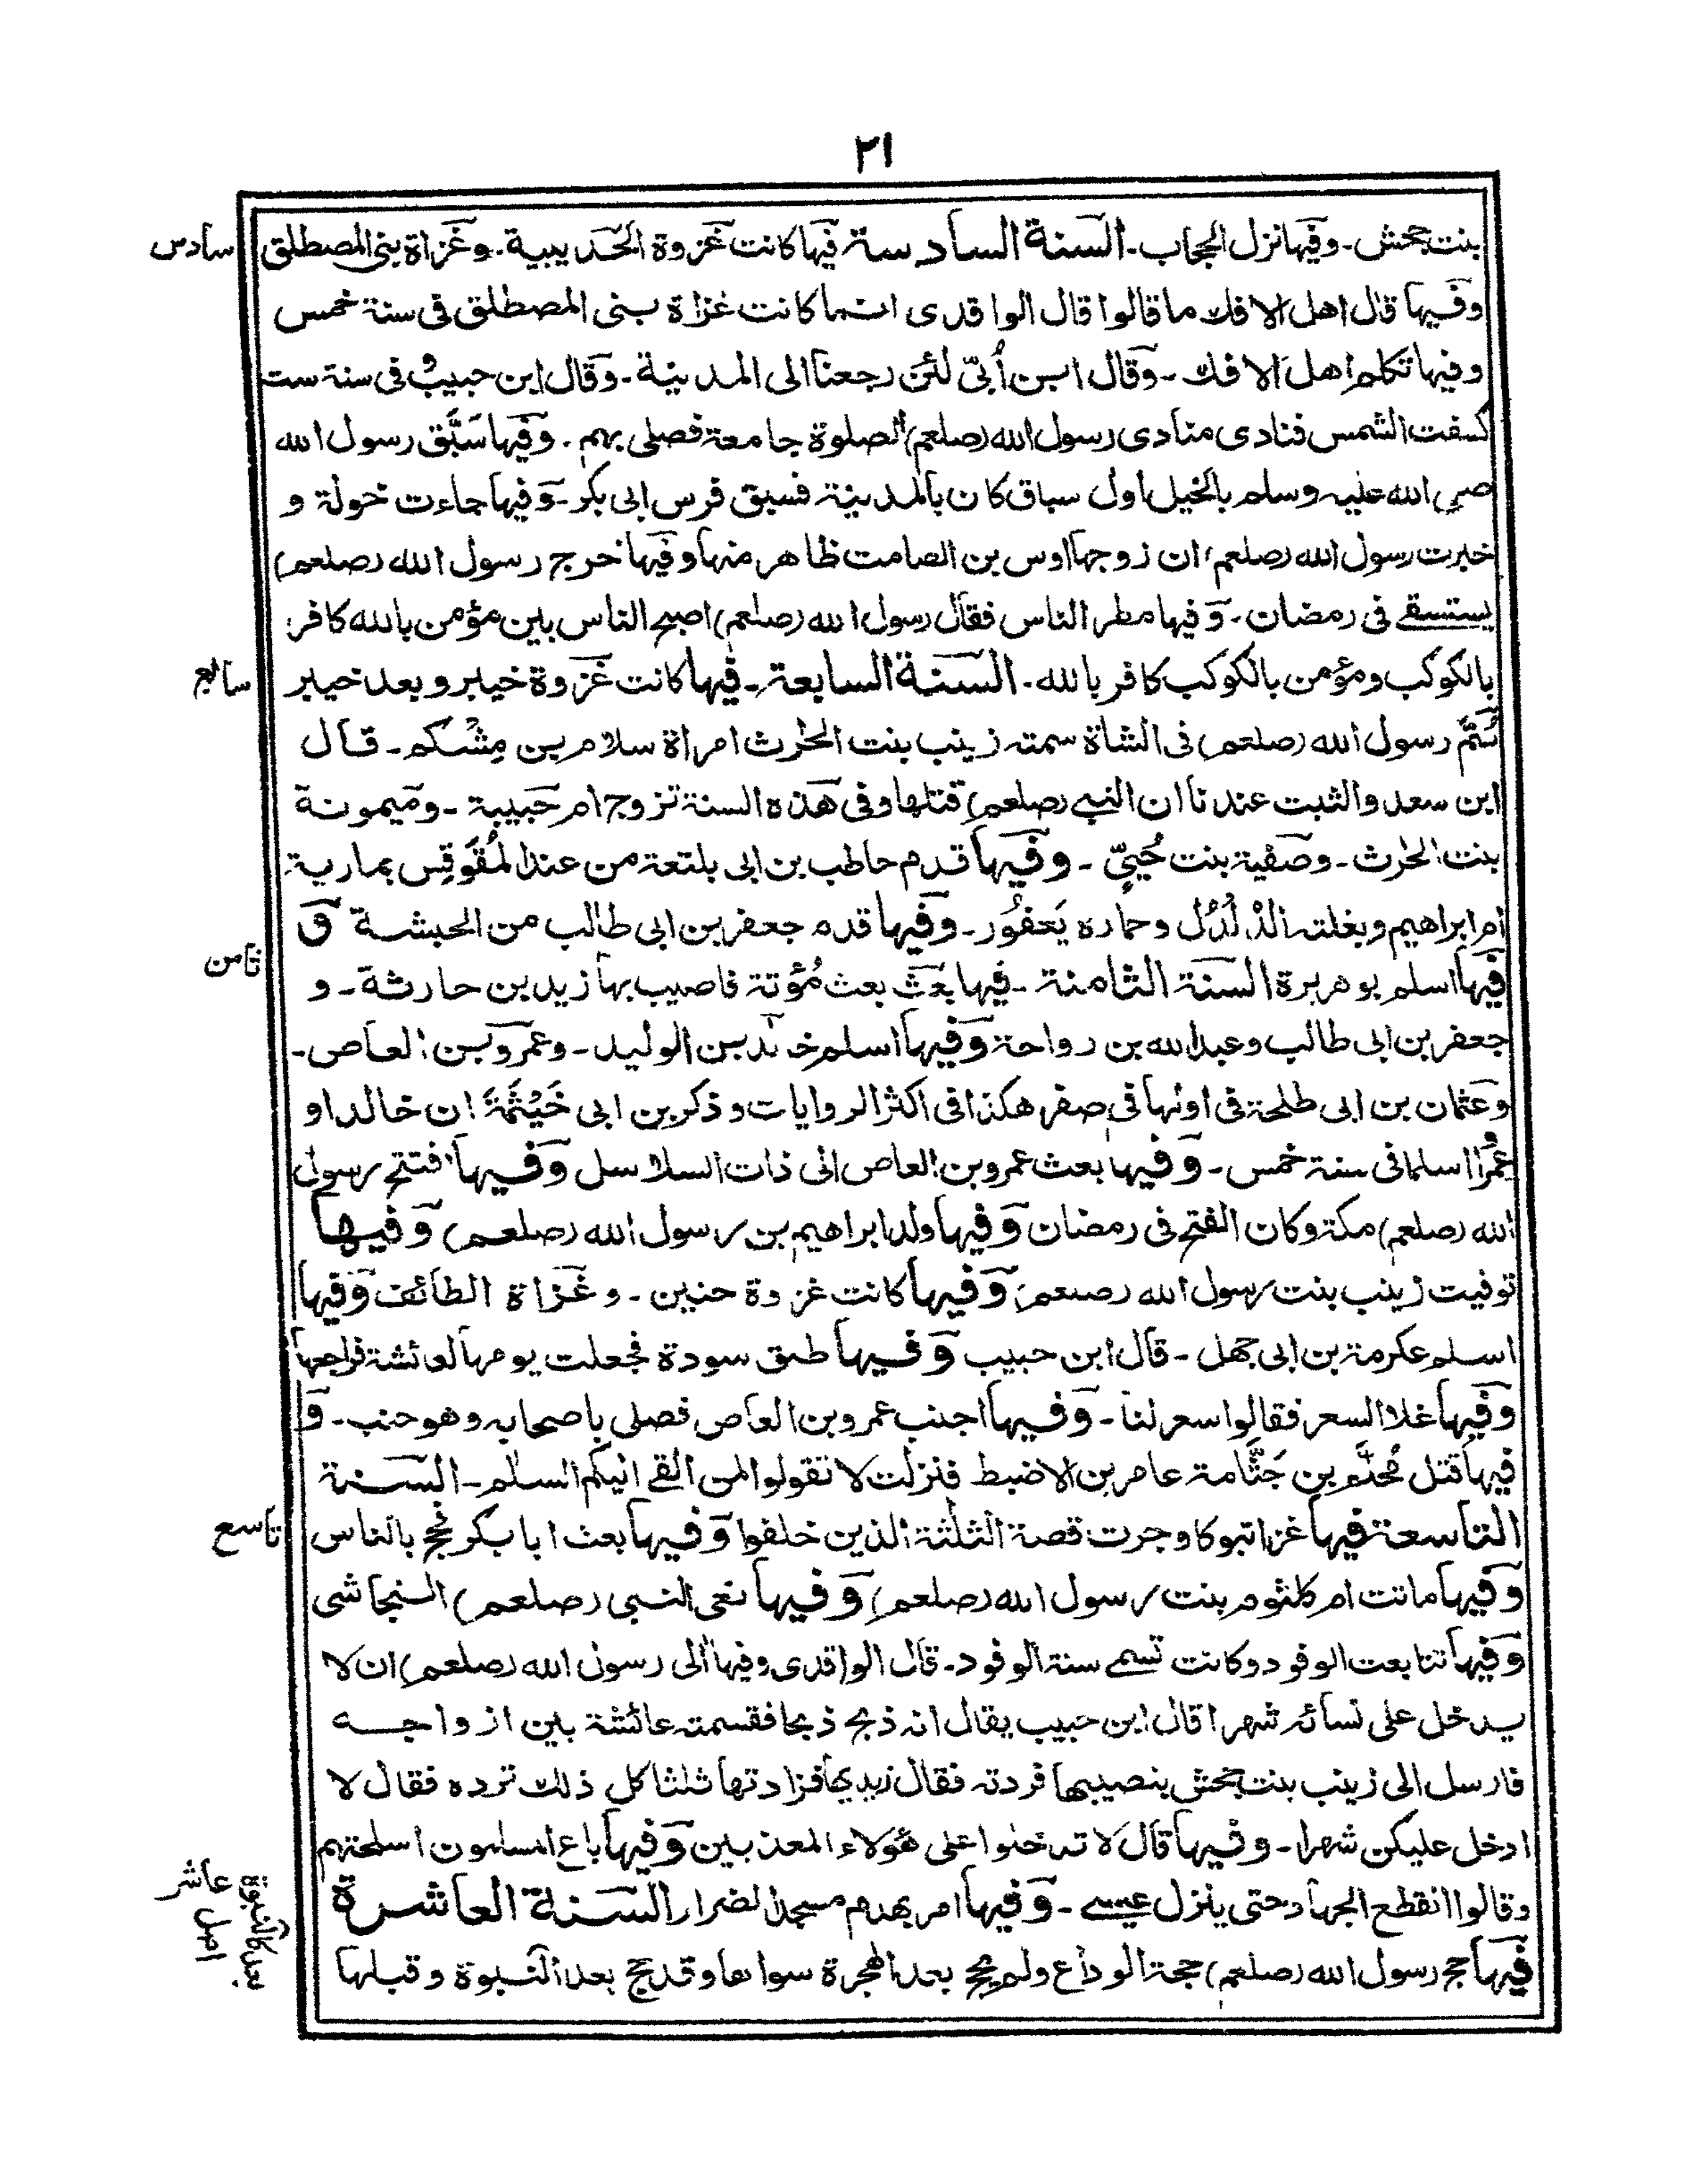 ٢١
بنت جحش۔ وفيها نزل الحجاب۔ السنة السادسة فيها كانت غزوة الحديبية۔ وغزاة بنى المصطلق
سادس
وفيها قال اهل الافك ما قالوا قال الواقدى انما كانت غزاة بنى المصطلق فى سنة خمس
وفيها تكلم اهل الافك ۔ وقال ابن أُبيّ لئن رجعنا الى المدينة۔ وقال ابن حبيب وفى سنة ست
كسفت الشمس فنادى منادى رسول الله (صلعم) الصلوة جامعة فصلى بهم۔ وفيها سَبَّق رسول الله
صلى الله عليه وسلم بالخيل اول سباق كان بالمدينة فسبق فرس ابى بكر۔ وفيها جاءت خولة و
خبرت رسول الله (صلعم) ان زوجها اوس بن الصامت ظاهر منها وفيها خرج رسول الله (صلعم)
يستسقے فى رمضان۔ وفيها مطر الناس فقال رسول الله (صلعم) اصبح الناس بين مؤمن بالله كافر
بالكوكب ومؤمن بالكوكب كافر بالله۔ السنة السابعة۔ فيها كانت غزوة خيبر وبعد خيبر
سابع
سُمَّ رسول الله (صلعم) فى الشاة سمته زينب بنت الحٰرث امراة سلام بن مِشْكم۔ قال
ابن سعد والثبت عندنا ان النبے (صلعم) قتلها وفى هذه السنة تزوج ام حبيبة۔ وميمونة
بنت الحٰرث۔ وصفية بنت حُييّ ۔ وفيها قدم حاطب بن ابى بلتعة من عند المُقَوقِس بمارية
ام ابراهيم وبغلته الدُلْدُل وحماره يَعفُور۔ وفيها قدم جعفر بن ابى طالب من الحبشة وَ
فيها اسلم بوهريرة السنة الثامنة ۔ فيها بعث بعث مُؤتة فاصيب بها زيد بن حارثة۔ و
ثامن
جعفر بن ابى طالب وعبد الله بن رواحة وفيها اسلم خالد بن الوليد۔ وعمرو بن العاص۔
وعثمان بن ابى طلحة فى اولها فى صفر هكذا فى اكثر الروايات وذكر بن ابى خَيْثَمَةَ ان خالدا و
عمرًا اسلما فى سنة خمس۔ وفيها بعث عمرو بن العاص الى ذات السلاسل وفيها افتتح رسول
الله (صلعم) مكة وكان الفتح فى رمضان وفيها ولد ابراهيم بن رسول الله (صلعم) وفيها
توفيت زينب بنت رسول الله (صلعم) وفيها كانت غزوة حنين۔ وغزاة الطائف وفيها
اسلم عكرمة بن ابى جهل ۔ قال ابن حبيب وفيها طلق سودة فجعلت يومها لعائشة فراجعها
وفيها غلا السعر فقالوا سعر لنا۔ وفيها اجنب عمرو بن العاص فصلى باصحابه وهو جنب۔ وَ
فيها قتل مُحَلَّم بن جَثَّامة عامر بن الاضبط فنزلت لا تقولوا لمن القے اليكم السلٰم۔ السنة
التاسعة فيها غزا تبوكا وجرت قصة الثلٰثة الذين خلفوا وفيها بعث ابا بكر فحج بالناس
تاسع
وفيها ماتت ام كلثوم بنت رسول الله (صلعم) وفيها نعى النبى (صلعم) النجاشى
وفيها تتابعت الوفود وكانت تسمے سنة الوفود۔ قال الواقدى وفيها اٰلى رسول الله (صلعم) ان لا
يدخل على نسائه شهرا قال ابن حبيب يقال انه ذبح ذبحا فقسمته عائشة بين ازواجه
فارسل الى زينب بنت جحش بنصيبها فردته فقال زيديها فزادتها ثلٰثا كل ذلك ترده فقال لا
ادخل عليكن شهرا۔ وفيها قال لا تدخلوا على هؤلاء المعذبين وفيها باع المسلمون اسلحتهم
وقالوا انقطع الجهاد حتى ينزل عيسے۔ وفيها امر بهدم مسجد الضرار السنة العاشرة
عاشر
فيها حج رسول الله (صلعم) حجة الوداع ولم يحج بعد الهجرة سواها وقد حج بعد النبوة وقبلها
بعد النبوة
اصل